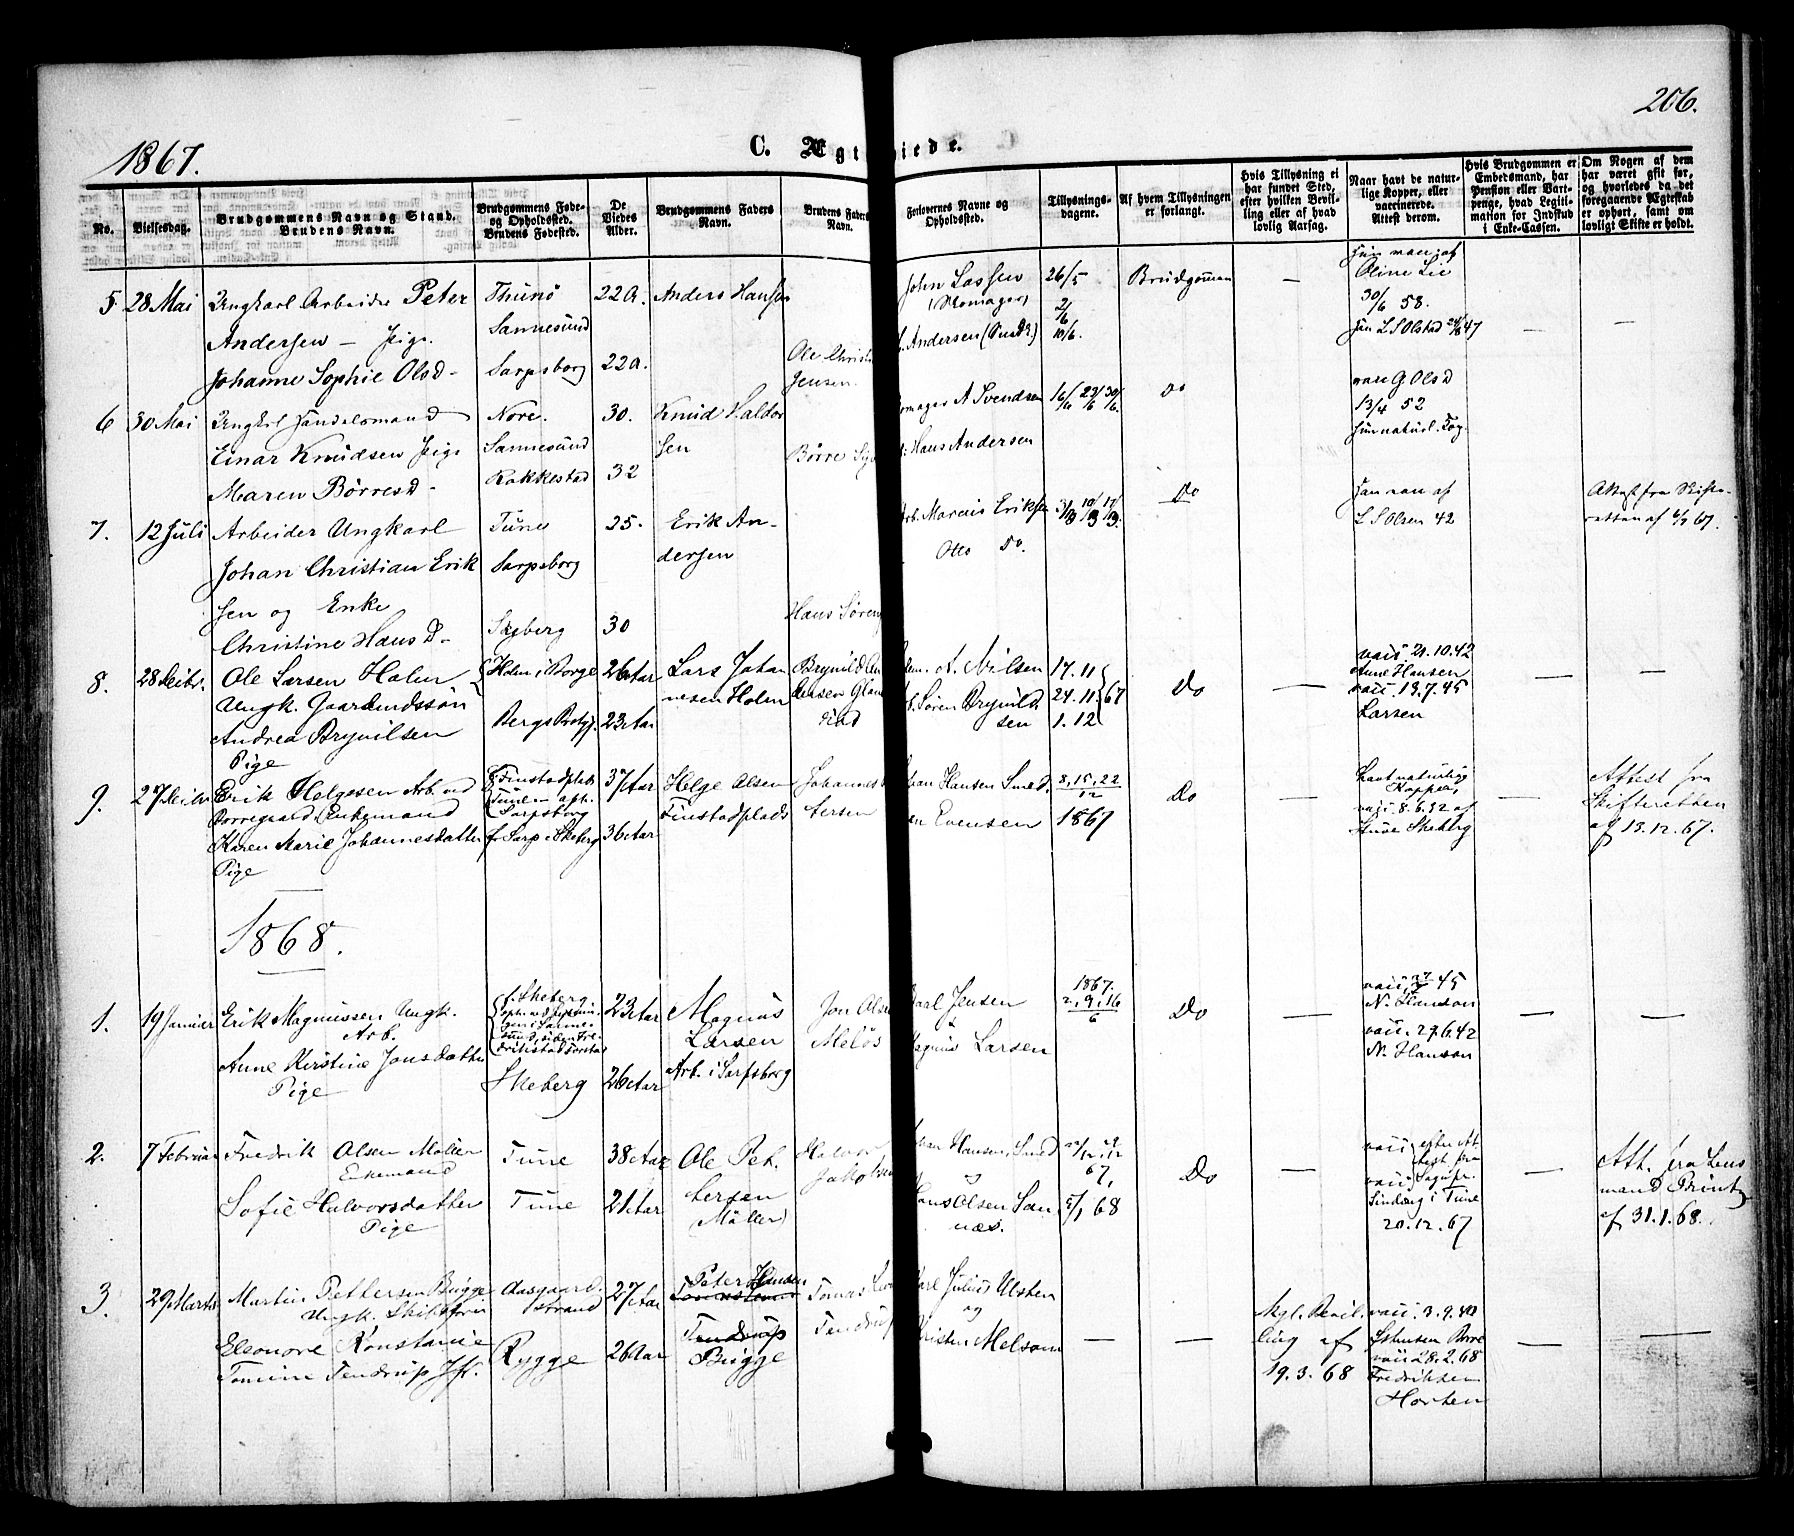 206.
1867.
C. Ægteviede.
No.
Vielsesdag.
Brudgommens Navn og Stand.
Brudens Navn.
Brudgommens Føde-
og Opholdssted.
Brudens Fødested.
De
Viedes
Alder.
Brudgommens Faders
Navn.
Brudens Faders
Navn.
Forlovernes Navne og
Opholdssted.
Tillysnings-
dagene.
Af hvem Tillysningen
er forlangt.
Hvis Tillysning ei
har fundet Sted,
efter hvilken Bevil-
ling eller af hvad
lovlig Aarsag.
Naar havt de natur-
lige Kopper, eller
vaccinerede.
Attest derom.
Hvis Brudgommen er
Embedsmand, har
Pension eller Vart-
penge, hvad Legiti-
mation for Indskud
i Enke-Cassen.
Om Nogen af dem
har været gift før,
og hvorledes da det
foregaaende Ægteskab
er ophørt, samt om
lovligt Skifte er holdt.
5. 28 Mai
Ungkarl Arbeider Peter
Andersen – Pige
Johanne Sophie Olsd –
Thunø
Sannesund
Sarpsborg
22 a.
22 a.
Anders Hansen
Ole Christ
Jensen.
John Lassen
(Skomager)
Andersen
26/5
2/6
10/6.
Brudgommen
—
Oline Lie
30/6 58.
L S Olstad 47
—
—
6 30 Mai
Ungkl Handelsmand
Einar Knudsen Pige
Maren Børresd –
Nore.
Sannesund
Rakkestad
30.
32
Knud Haldor
sen
Børre
A Svendsen
Hans Andersen
16/6 23/6 30/6.
Do
G Olsd
13/4 52
naturl. Kop.
7. 12 Juli
Arbeider Ungkarl
Johan Christian Erik
sen og Enke
Christine Hansd –
Tune
Sarpsborg
Skjeberg
25.
30
Erik An-
dersen
Hans Søren
Arb. Marcus Eriksen
Otto Do.
Do
Han vac af
L S Olsen 42
Attest fra Skifte-
retten af 6/7 67.
8. 28 Decbr.
Ole Larsen Holm
Ungk. Gaardmandssøn
Andrea Brynilsen
Pige
Holm i Borge
Bergs Prstgj.
26 Aar
23 Aar
Lars Johan
nesen Holm
Brynild An
dersen
A. Nilsen
Søren Brynild
sen
17.11
24.11 67
1.12
Do
—
vacc. 21.10.42
Anne Hansen
vacc. 13.7.45
Larsen
—
—
9. 27 Decbr
Erik Helgesen Arb. ved
Borregaard, Enkemand
Karen Marie Johannesdatter
Pige
f. Finstadplads
Tune – oph.
Sarpsborg
f. Sarp i Skeberg
37 Aar
36 Aar
Helge Olsen
Finstadplads
Johannes
dersen
Hansen Smed.
Evensen
8, 15, 22
12
1867
Do
—
Havt naturlige
Kopper,
vacc. 8.6.32 af
Skeberg
—
Attest fra
Skifteretten
af 13.12.67.
1868.
1. 19 Januar
Erik Magnussen Ungk.
Arb.
Anne Kirstine Jonsdatter
Pige
f. Skeberg
Skeberg
23 Aar
26 Aar
Magnus
Larsen
Arb. i Sarpsborg
Jon Olsen
Meløs
Jensen
Magnus Larsen
1867.
2, 9, 16
6
Do
—
N. Hanson
vacc. 27.6.42
N. Hanson
—
—
2. 7 Februar
Fredrik Olsen Møller
Enkemand
Sofie Halvorsdatter
Pige
Tune
Tune
38 Aar
21 Aar
Ole Pet.
tersen
Møller
Halvor
Jakobsen
Hansen Smed
og
Hans Olsen San
næs.
67,
5/1 68
Do
—
vacc efter At
test fra
vacc Sogpr.
Linding i Tune
20.12.67
—
Att. fra Lens
mand Printz
af 31.1.68.
3. 29 Marts
Martin Pettersen Bugge
Ungk. Skibsfører
Eleonore Konstance
Tomine Tendrup Jfr.
Aasgaard-
strand
Rygge
27 Aar
26 Aar
Peter Hansen
Tendrup
Bugge
Tomas
Tendrup
Karl Julius Olsten
og
Kristen Melsom
—
—
Kgl. Bevil.
ling af
19.3.68
vacc. 3.9.40
Borre
vacc 28.2.68
Fredriksen
Horten
—
—